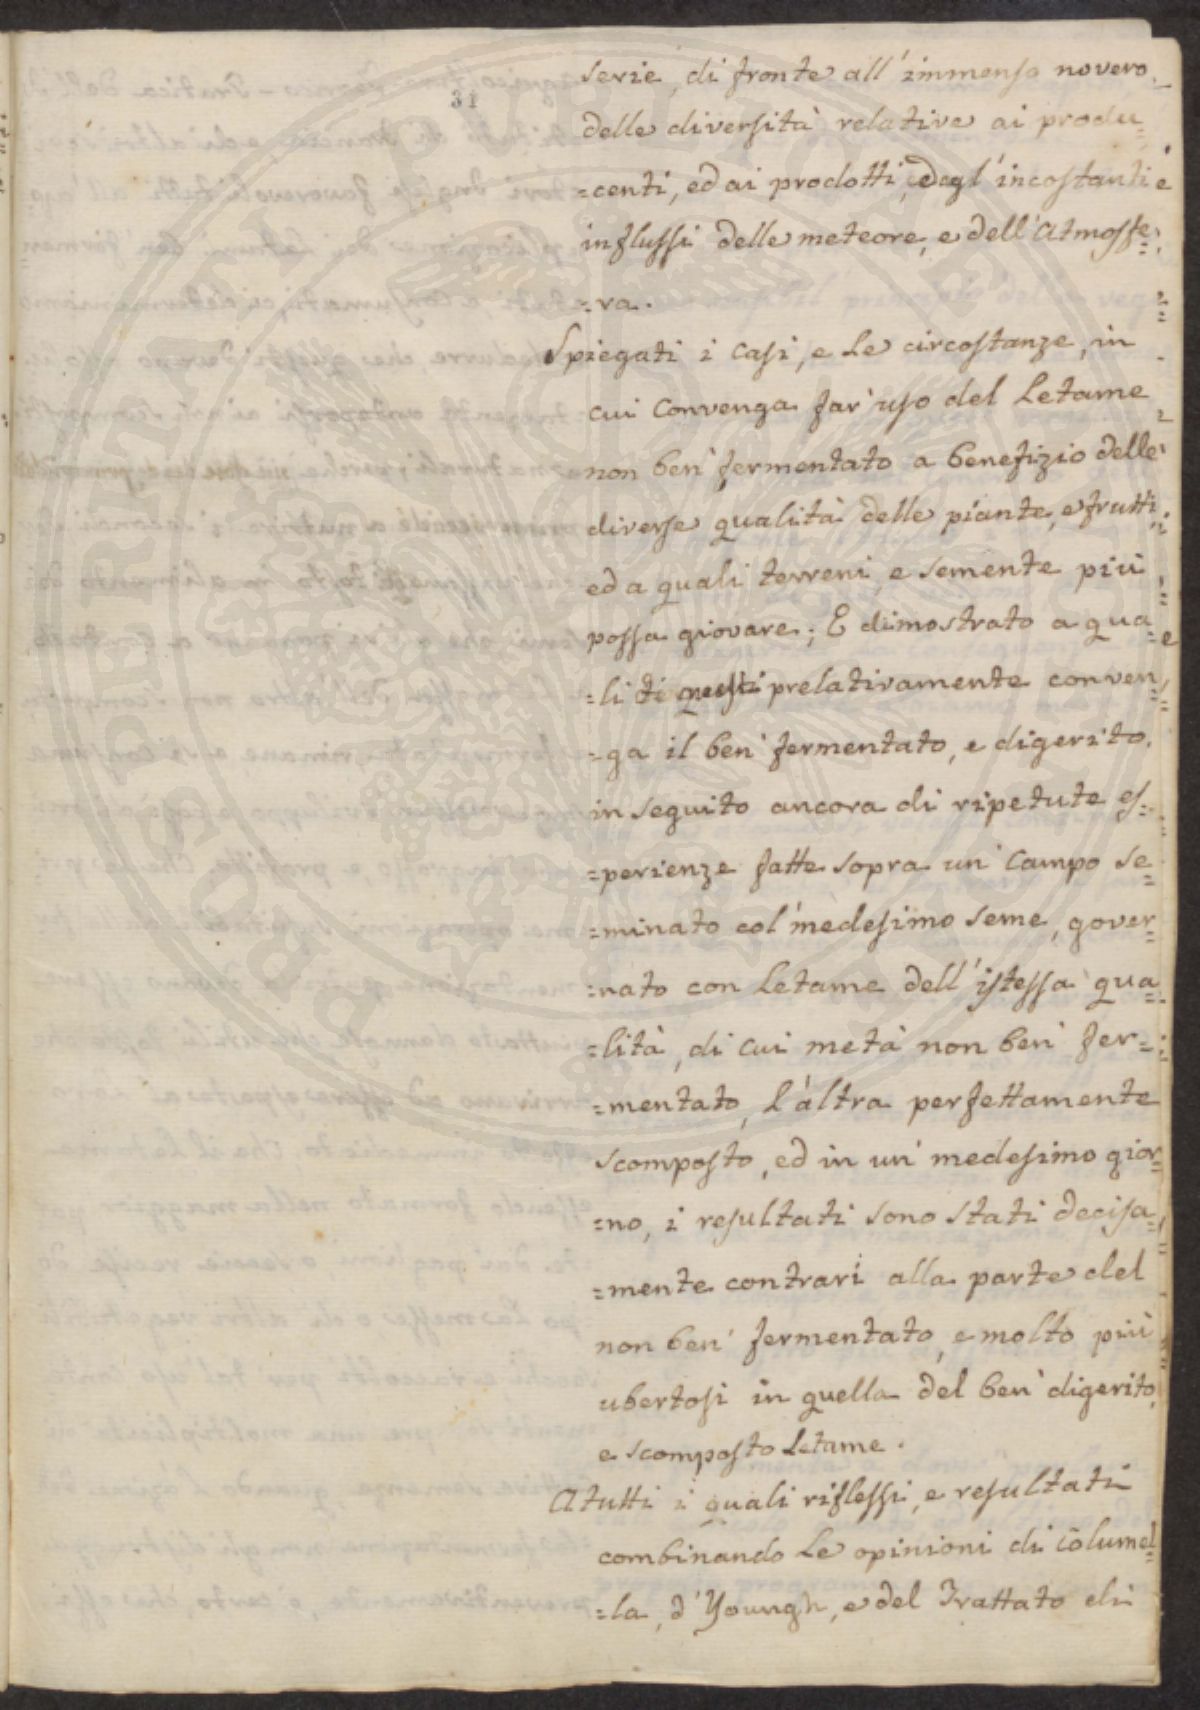 31
serie, di fronte all'immenso novero
delle diversità relative ai produ-
=centi, ed ai prodotti, degl'incostanti
influssi delle meteore, e dell'Atmosfe=
=ra.
Spiegati i casi, e le circostanze, in
cui convenga far' uso del Letame
non ben' fermentato a benefizio delle
diverse qualità delle piante, e frutti,
ed a quali terreni, e semente più
possa giovare; E dimostrato a qua=
=li di questi prelativamente conven=
=ga il ben' fermentato, e digerito,
in seguito ancora di ripetute es=
=perienze fatte sopra un' Campo se=
=minato col' medesimo seme, gover=
=nato con Letame dell'istessa qua=
=lità, di cui metà non ben' fer=
=mentato, l'altra perfettamente
scomposto, ed in un' medesimo gior=
=no, i resultati sono stati decisa=
=mente contrari alla parte del
non ben' fermentato, e molto più
ubertosi in quella del ben' digerito,
e scomposto Letame.
A tutti i quali riflessi, e resultati
combinando le opinioni di Columel=
=la, d'Youngh, e del Trattato di